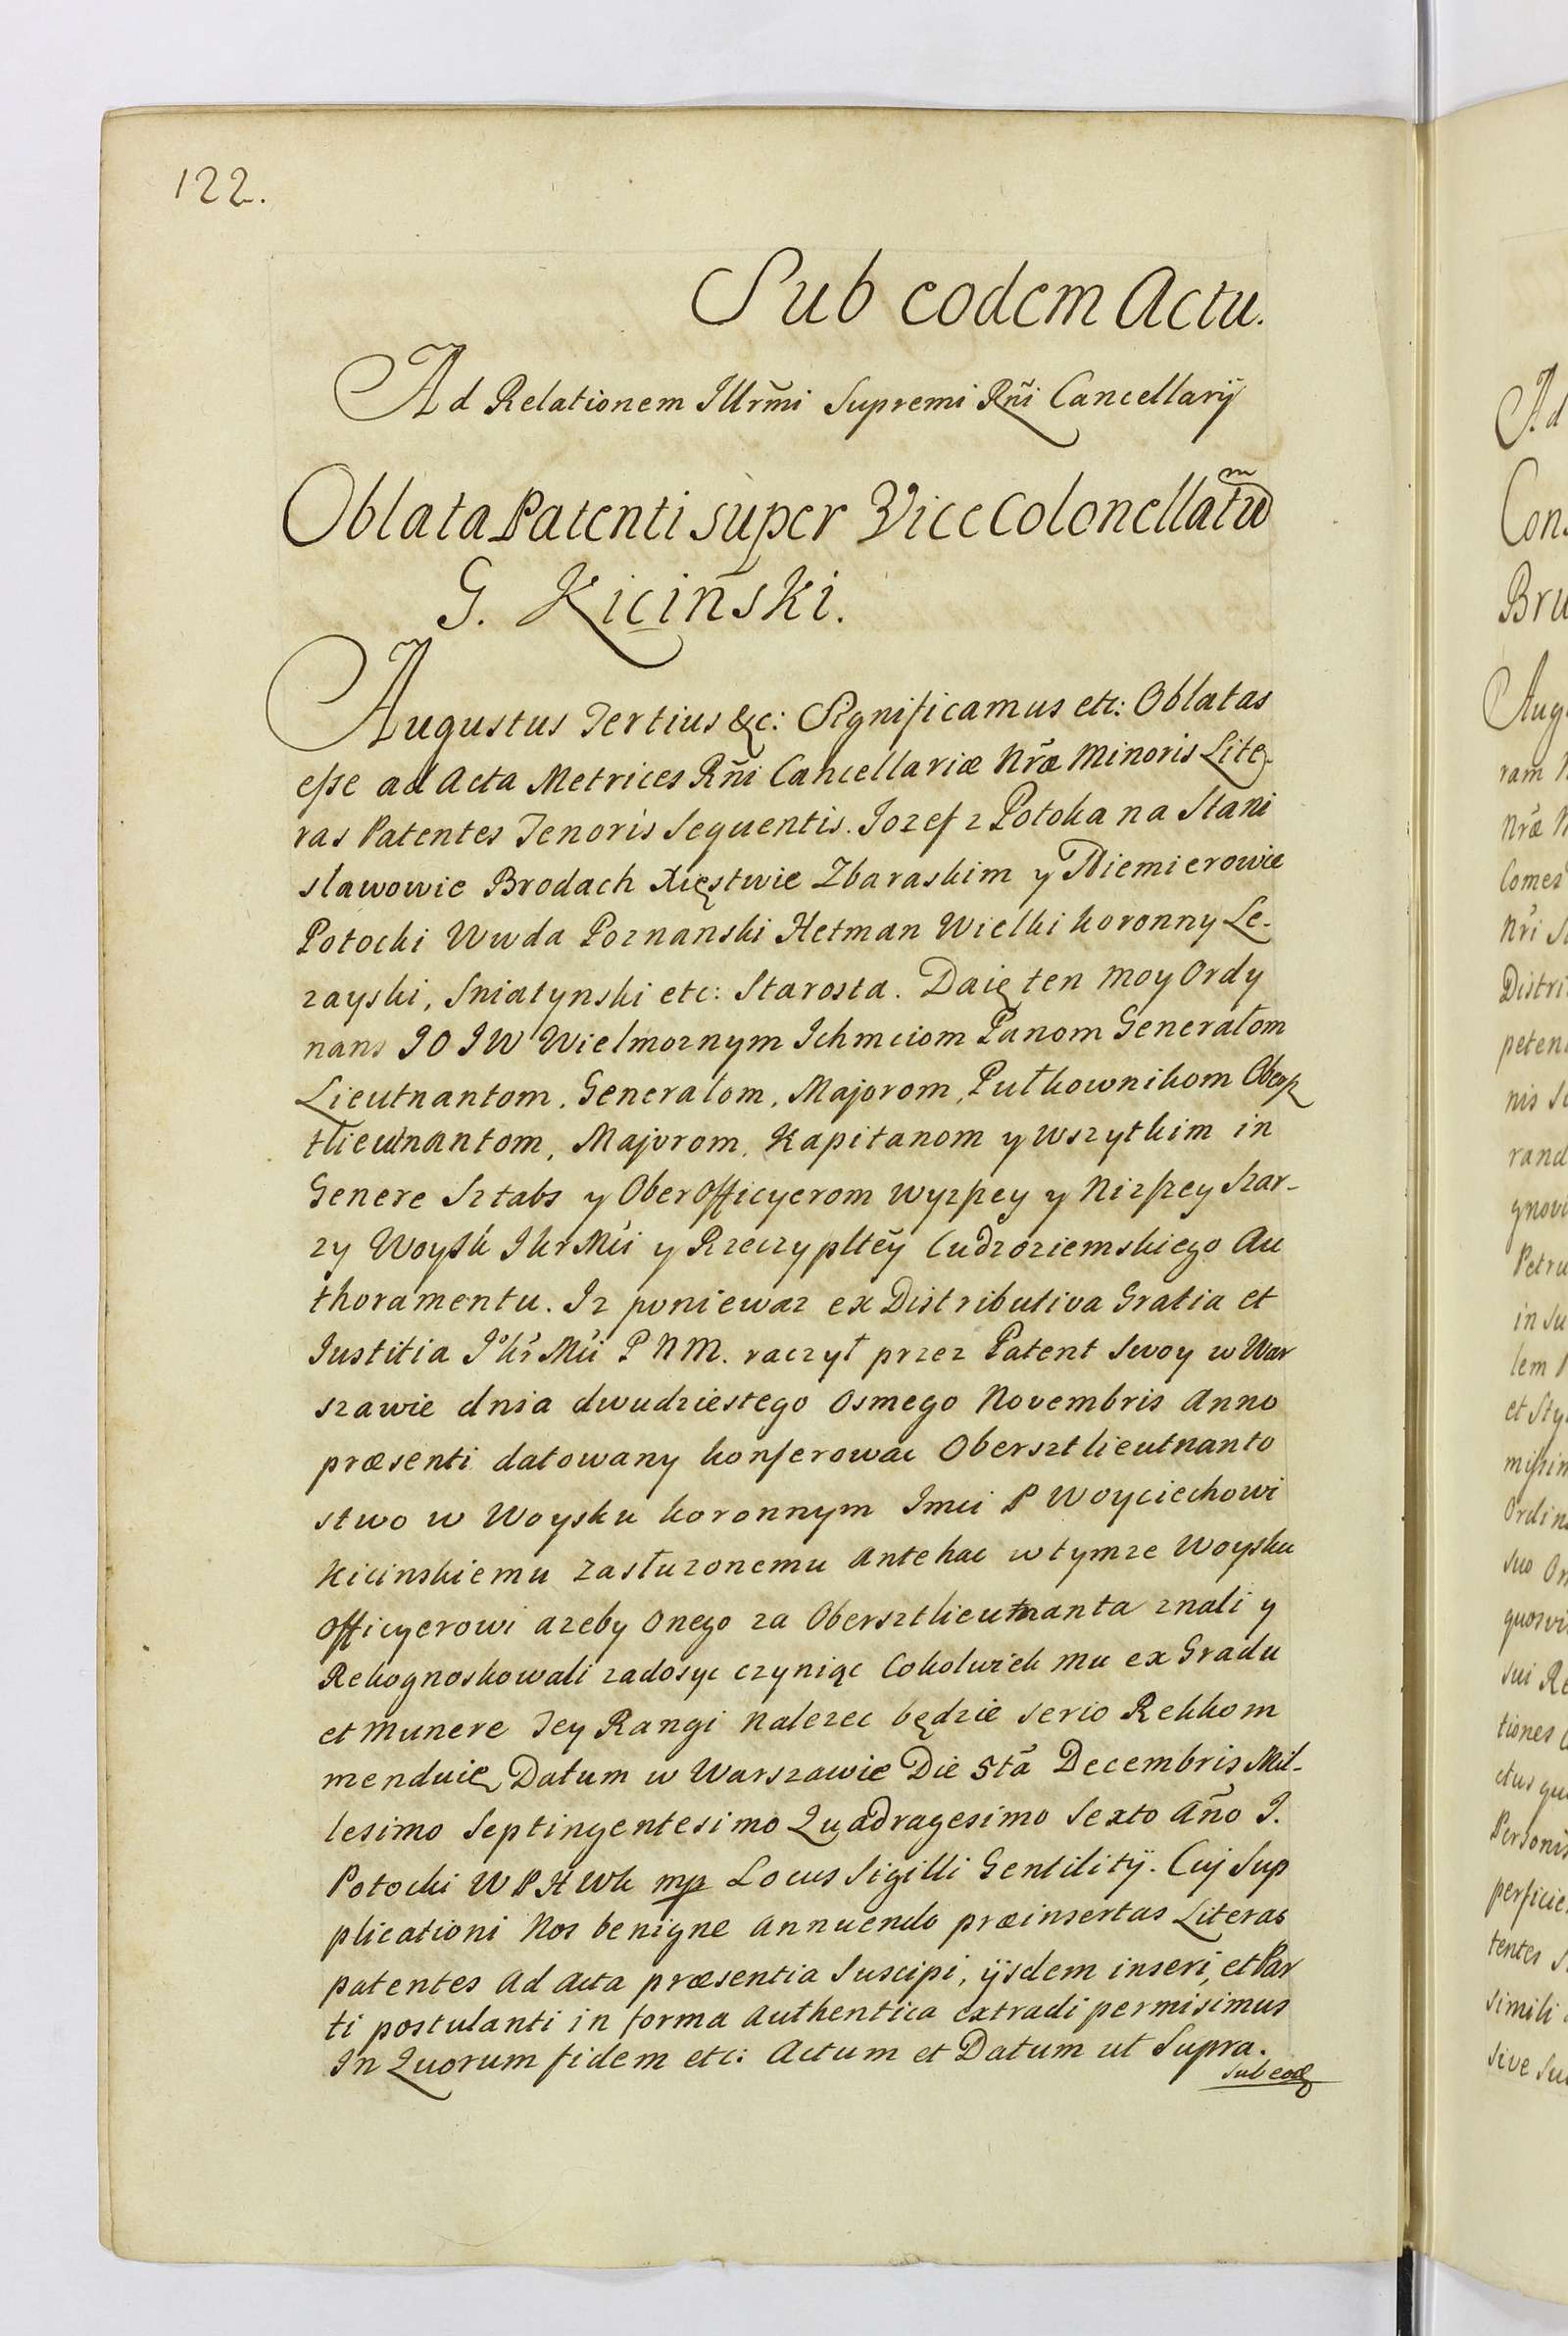 122.
Sub eodem Actu.
Ad Relationem Illrm̃i Supremi Rñi Cancellarÿ
Oblata Patenti super Vice Colonellatũm
G. Kicinski.
Augustus Tertius &c: Significamus etc: Oblatas
eſse ad Acta Metrices Rñi Cancellariæ Nræ̃ Minoris Lite-
ras Patentes Tenoris Sequentis. Iozef z Potoka na Stani
sławowie Brodach Xięstwie Zbaraskim y Niemierowie
Potocki Wwda Poznanski Hetman Wielki koronny Le-
zayski, Sniatynski etc: Starosta. Daię ten moy Ordy
nans JO JW Wielmoznym Ichmciom Panom Generałom
Lieutnantom, Generałom, Majorom, Pułkownikom Obersz
tlieutnantom, Majorom, Kapitanom y wszytkim in
Genere Sztabs y Oberofficyerom wyzſzey y Nizſzey szar-
zy Woysk JKr Mći y Rzeczyplteỹ Cudzoziemskiego Au
thoramentu. Iz poniewaz ex Distributiva Gratia et
Iustitia Jº Kr̃ Mći P N M. raczył przez Patent swoy w War
szawie dnia dwudziestego osmego Novembris Anno
præsenti datowany konferowac Obersztlieutnanto
stwo w Woysku koronnym Imci P Woyciechowi
Kicinskiemu zasłuzonemu antehac w tymze Woysku
officyerowi azeby onego za Obersztlieutnanta znali y
Rekognoskowali zadosyc czyniąc Cokolwiek mu ex Gradu
et munere Tey Rangi nalezec będzie serio Rekkom
menduię Datum w Warszawie Die 5tã Decembris Mil-
lesimo Septingentesimo Quadragesimo Sexto Año J.
Potocki W P H W k mp Locus Sigilli Gentilitÿ. Cuj Sup
plicationi Nos benigne annuendo præinsertas Literas
patentes ad acta præsentia Suscipi, ÿsdem inseri, et Par
ti postulanti in forma authentica extradi permisimus
In Quorum fidem etc: Actum et Datum ut Supra.
Sub eod
Ad
Con
Bru
Aug
ram
Nræ̃
Comes
Nr̃i
Distri
peten
nis
rand
gnov
Petru
in su
lem
et Sty
miſsim
Ordin
suo
quosvi
sui Re
tiones
ctus qu
Personis
perficie
tentes
simili
sive su